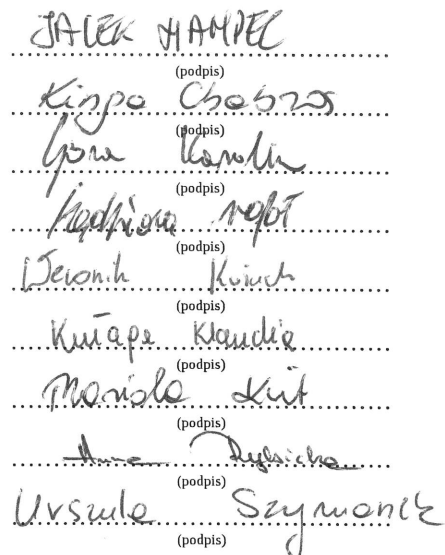 JACEK HAMPEL
(podpis)
Kinga Chabzos
(podpis)
Góra Karolin
(podpis)
(podpis)
Weronik
(podpis)
Kułapa Klaudia
(podpis)
Mariola Kut
(podpis)
Anna Rybicka
(podpis)
Urszula Szymanek
(podpis)